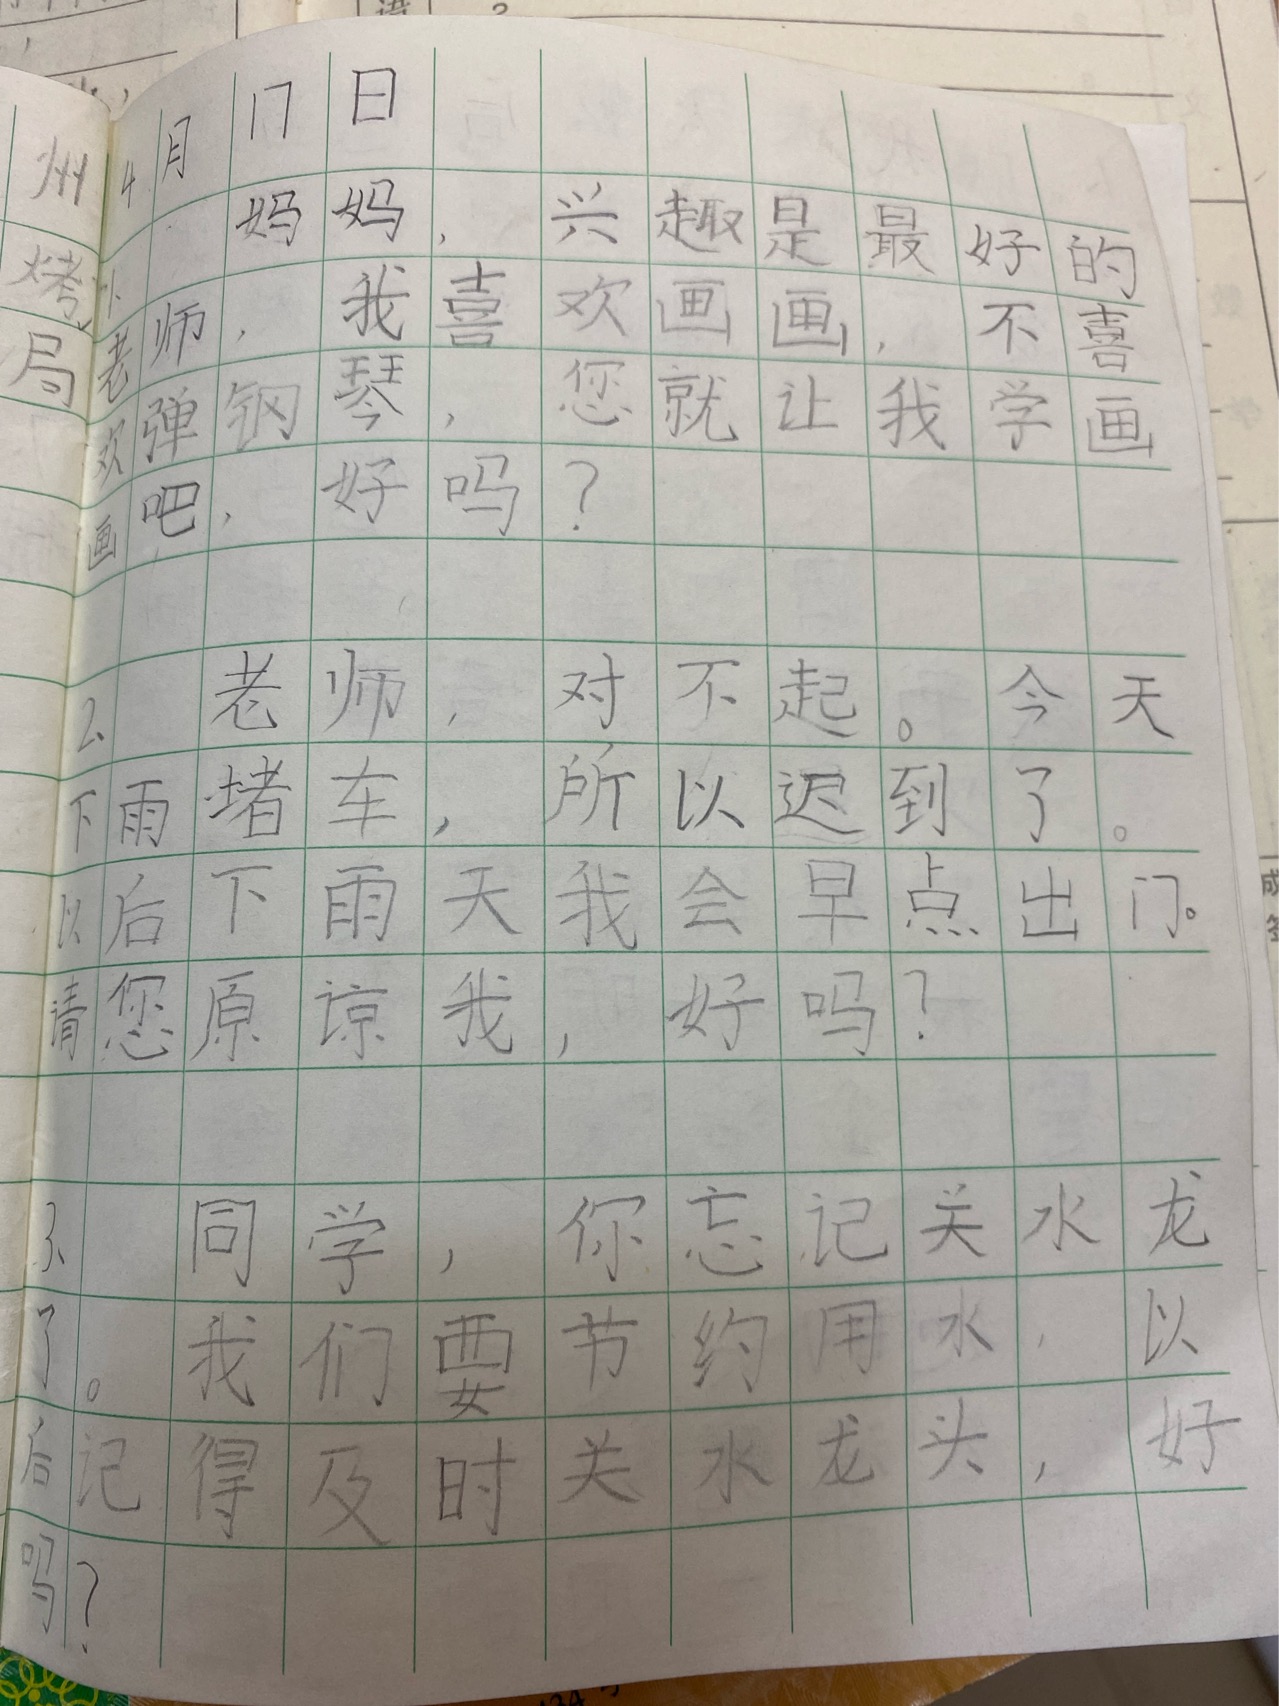 4月17日
1、妈妈，兴趣是最好的
老师，我喜欢画画，不喜
欢弹钢琴，您就让我学画
画吧，好吗？
2、老师，对不起。今天
下雨堵车，所以迟到了。
以后下雨天我会早点出门。
请您原谅我，好吗？
3、同学，你忘记关水龙
了。我们要节约用水，以
后记得及时关水龙头，好
吗？
州
烤
局